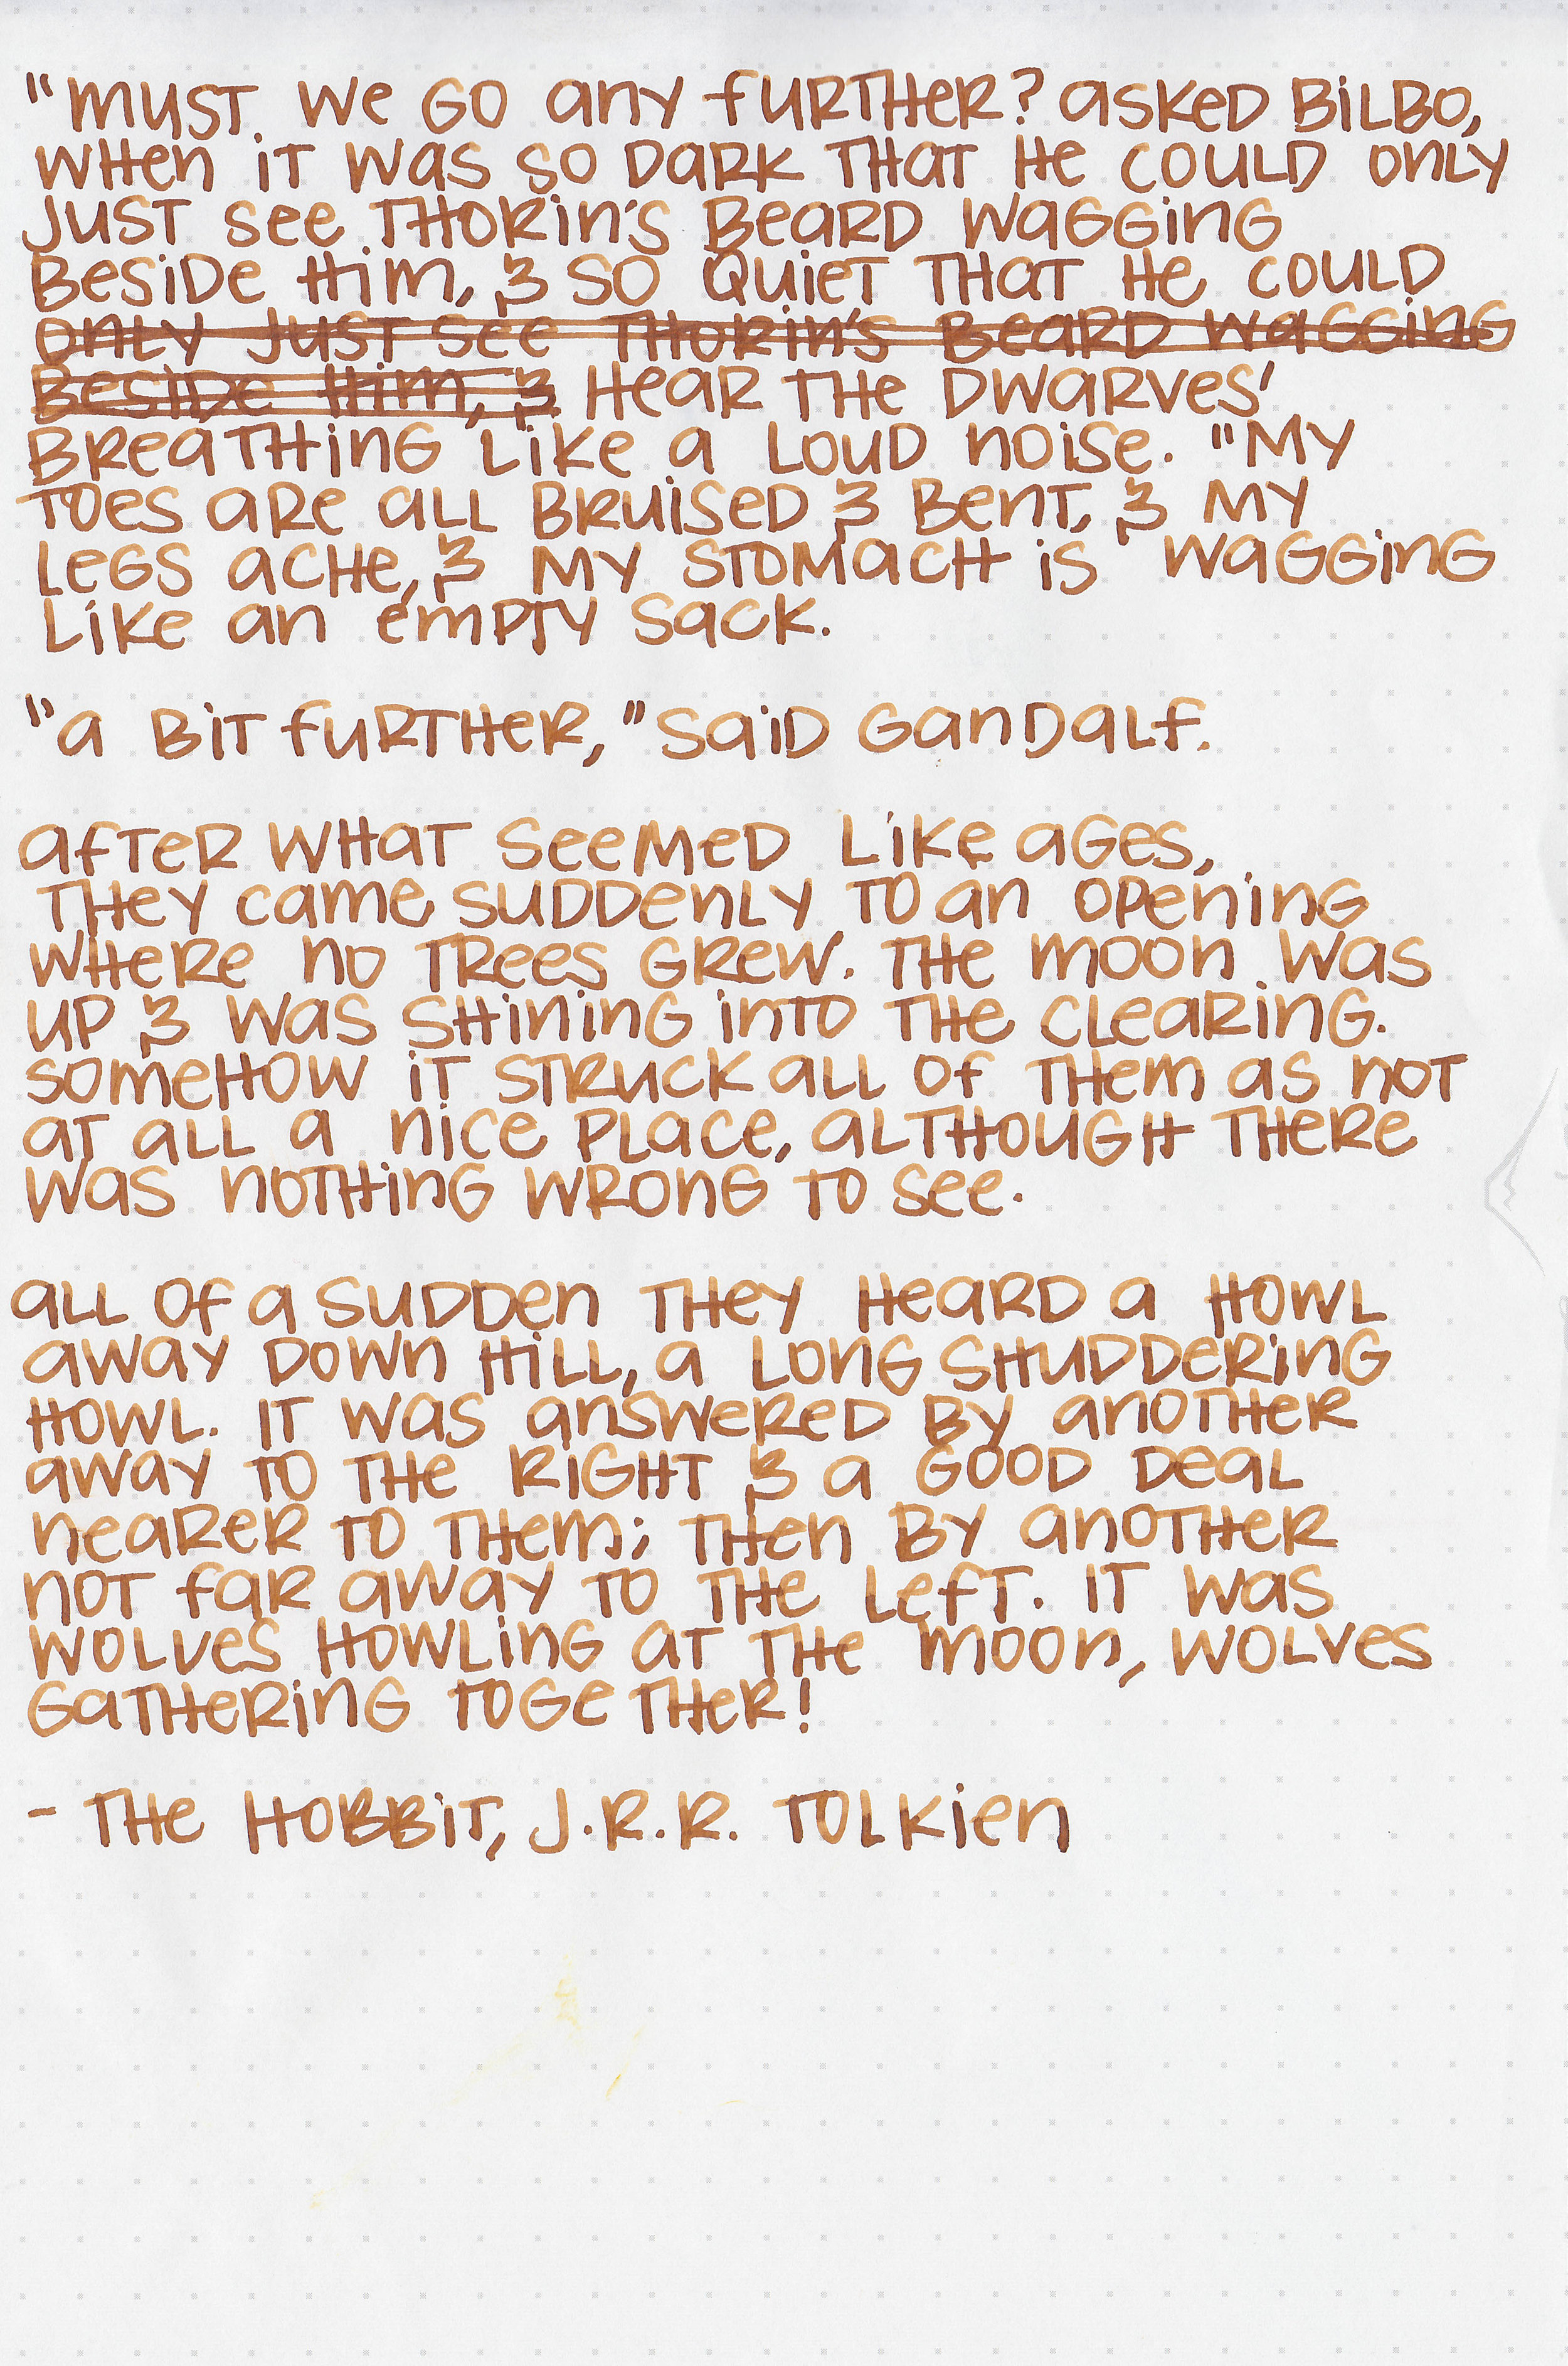 "Must we go any further? asked Bilbo,
when it was so dark that he could only
just see Thorin's beard wagging
beside him, & so quiet that he could
only just see Thorin's beard wagging
beside him, & hear the dwarves'
breathing like a loud noise. "My
toes are all bruised & bent, & my
legs ache, & my stomach is wagging
like an empty sack.
"A bit further," said Gandalf.
After what seemed like ages,
they came suddenly to an opening
where no trees grew. The moon was
up & was shining into the clearing.
Somehow it struck all of them as not
at all a nice place, although there
was nothing wrong to see.
All of a sudden they heard a howl
away down hill, a long shuddering
howl. It was answered by another
away to the right & a good deal
nearer to them; then by another
not far away to the left. It was
wolves howling at the moon, wolves
gathering together!
- The Hobbit, J.R.R. Tolkien